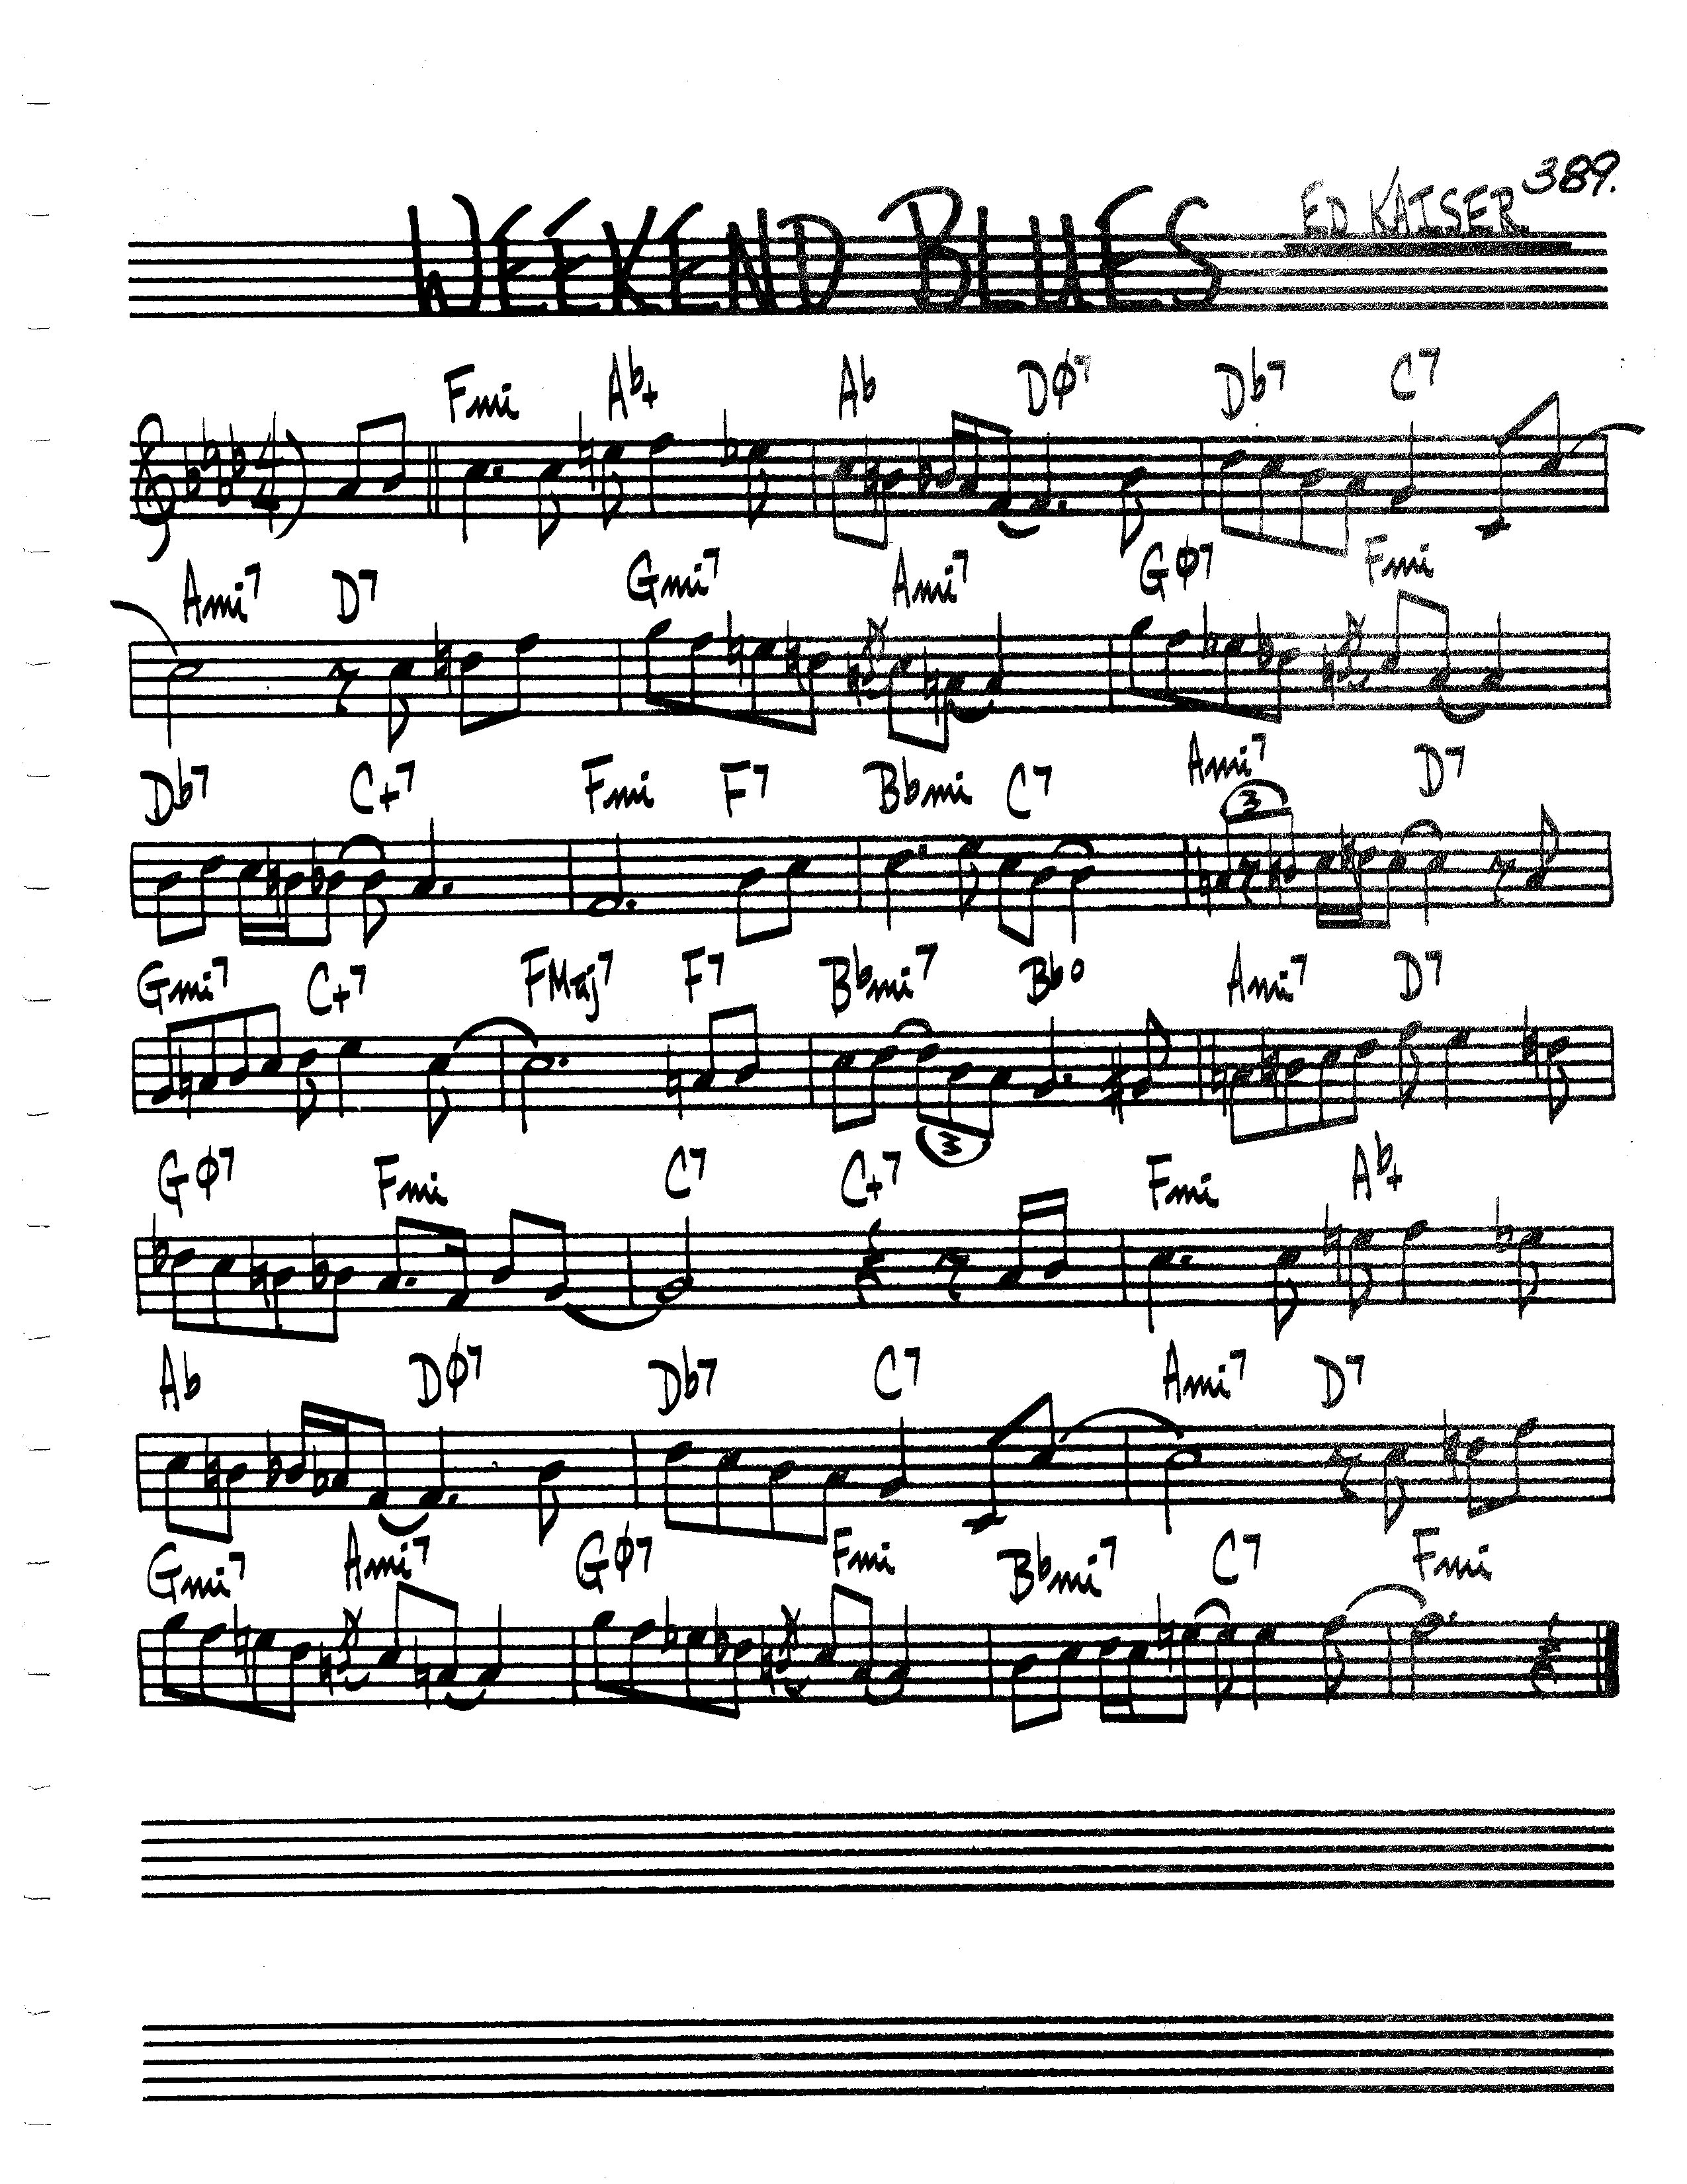 389.
WEEKEND BLUES ED KAISER
Fmi Ab+ Ab DØ7 Db7 C7
4
4
Ami7 D7 Gmi7 Ami7 GØ7 Fmi
Db7 C+7 Fmi F7 Bbmi C7 Ami7 D7
3
Gmi7 C+7 FMaj7 F7 Bbmi7 Bbo Ami7 D7
3
GØ7 Fmi C7 C+7 Fmi Ab+
Ab DØ7 Db7 C7 Ami7 D7
Gmi7 Ami7 GØ7 Fmi Bbmi7 C7 Fmi